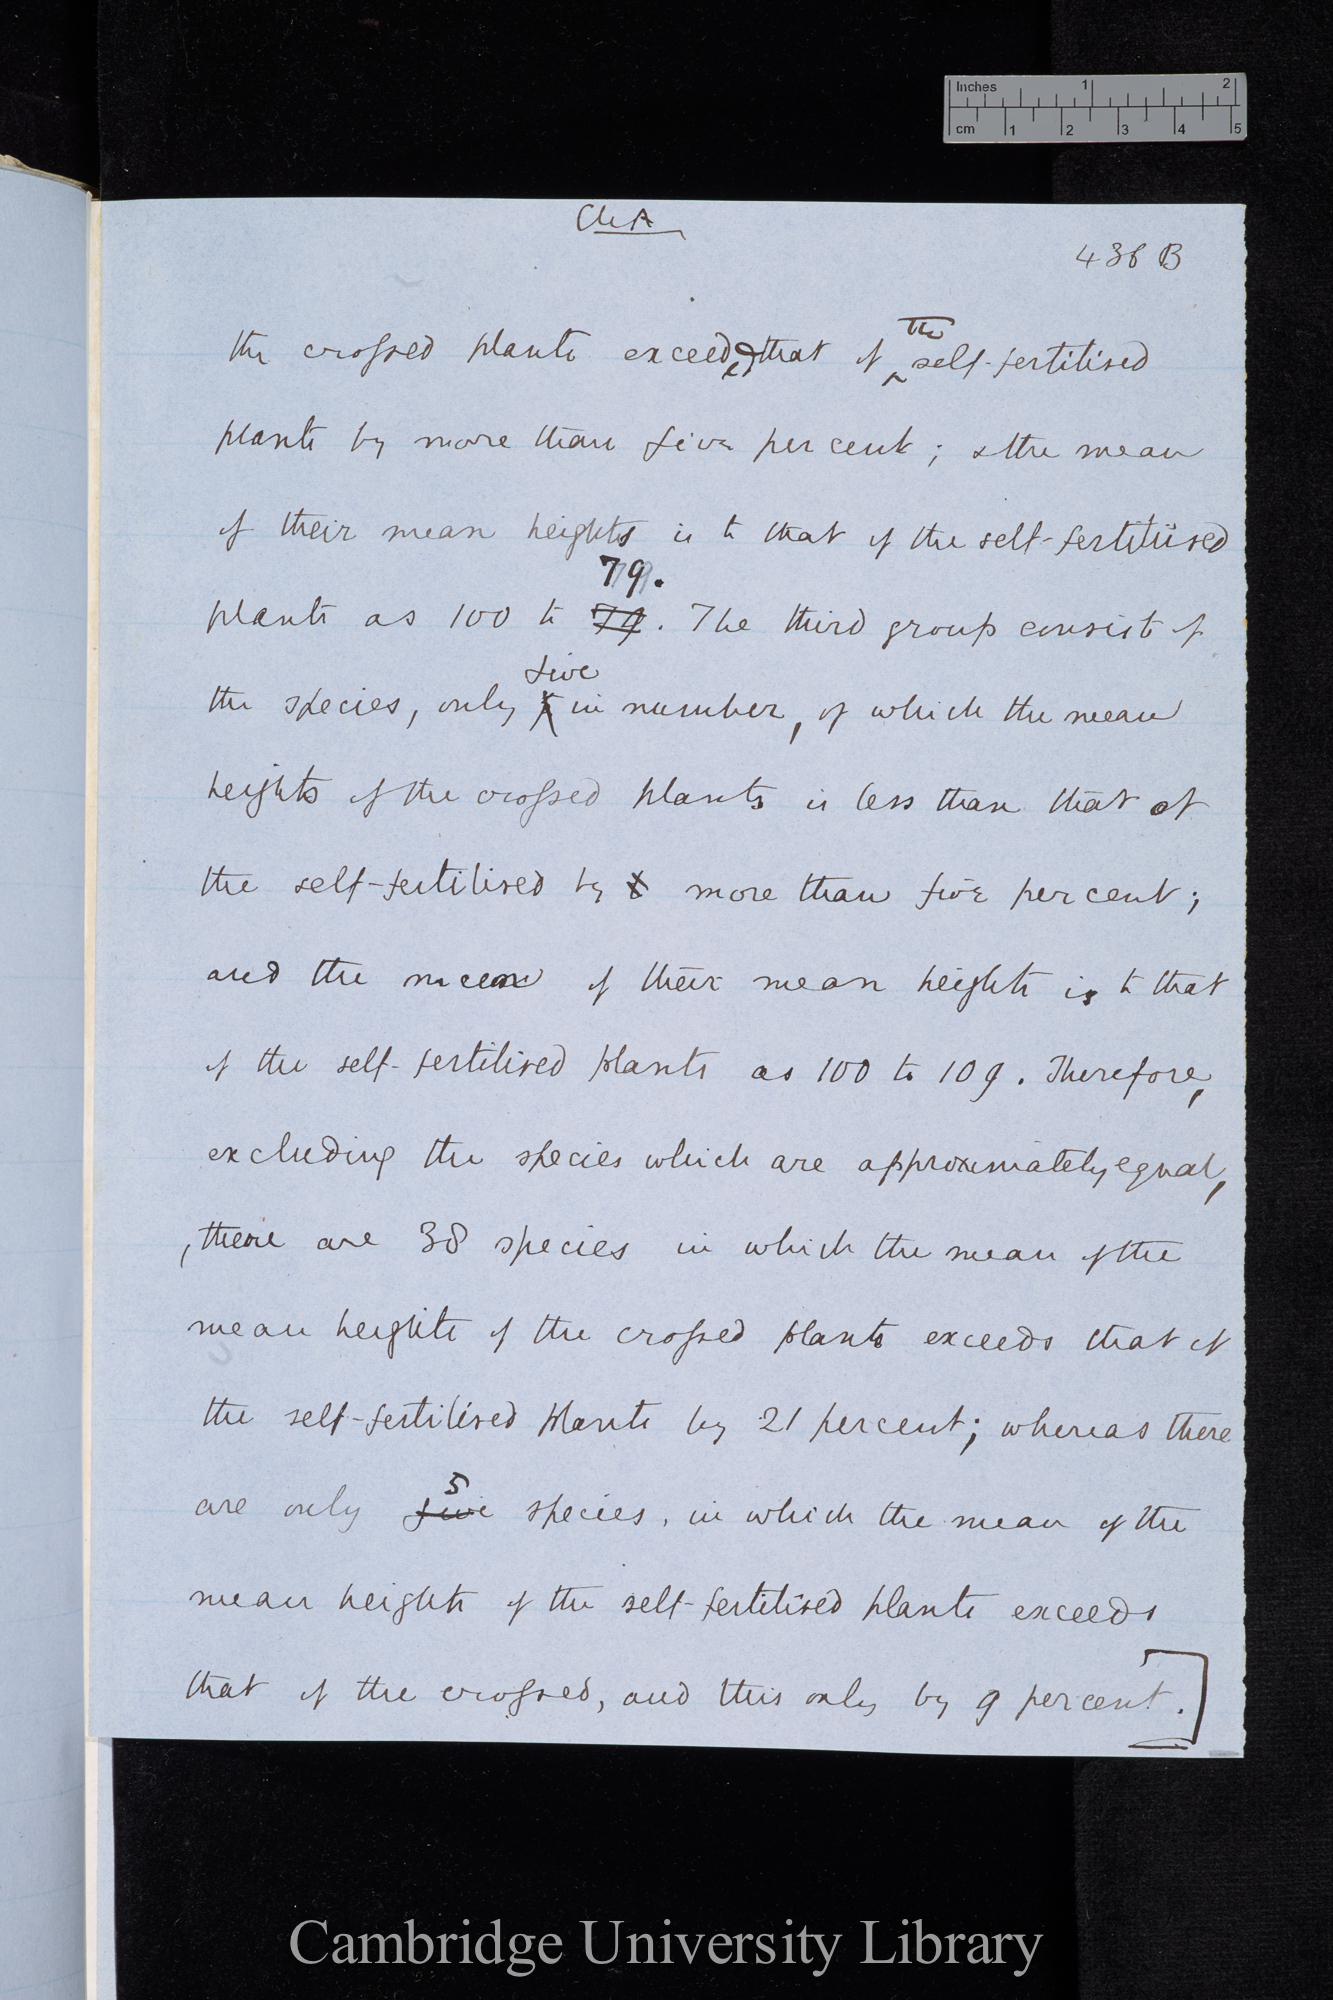 Inches 1 2
cm 1 2 3 4 5
436 B
the crossed plants exceeds that of the self-fertilised
plants by more than five per cent; & the mean
of their mean heights is to that of the self-fertilised
79.
plants as 100 to 79. The third group consist of
five
the species, only in number, of which the mean
heights of the crossed plants is less than that of
the self-fertilised by more than five per cent;
and the mean of their mean heights is to that
of the self-fertilised plants as 100 to 109. Therefore,
excluding the species which are approximately equal,
, there are 38 species in which the mean of the
mean heights of the crossed plants exceeds that of
the self-fertilised plants by 21 per cent; whereas there
5
are only five species, in which the mean of the
mean heights of the self-fertilised plants exceeds
that of the crossed, and this only by 9 per cent.]
Cambridge University Library